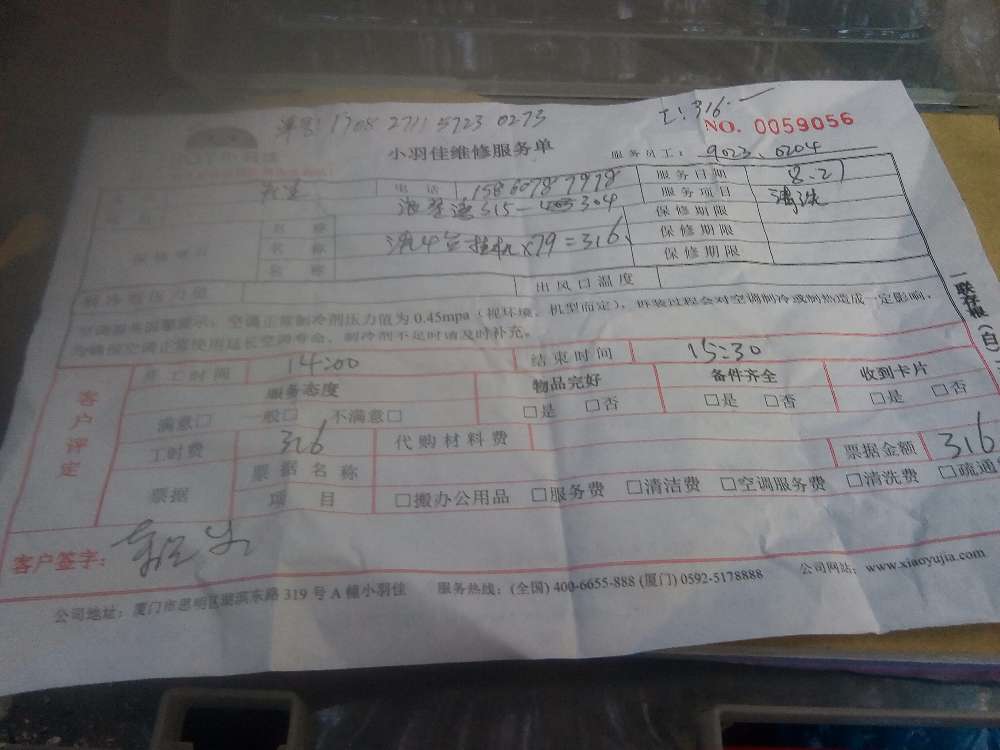 单号: 1708 2711 5723 0273
工: 316.—
NO. 0059056
小羽佳维修服务单
服务员工: 9023、0204
电话 服务日期 8.21
服务项目 清洗
315— 304
名称 保修期限
名称 洗4台挂机×79=316 保修期限
名称 保修期限
出风口温度
空调正常制冷剂压力值为0.45mpa（视环境、机型而定），拆装过程会对空调制冷或制热造成一定影响，
为确保空调正常使用延长空调寿命，制冷剂不足时请及时补充。
一联存根（白）
客户评定
开工时间 14:00 结束时间 15:30
服务态度 物品完好 备件齐全 收到卡片
满意□ 一般□ 不满意□ □是 □否 □是 □否 □是 □否
工时费 316 代购材料费 票据金额 316
票据 票据名称
项目 □搬办公用品 □服务费 □清洁费 □空调服务费 □清洗费 □疏通
客户签字:
公司地址: 厦门市思明区 东路319号A幢小羽佳 服务热线: (全国) 400-6655-888 (厦门) 0592-5178888 公司网站: www.xiaoyujia.com